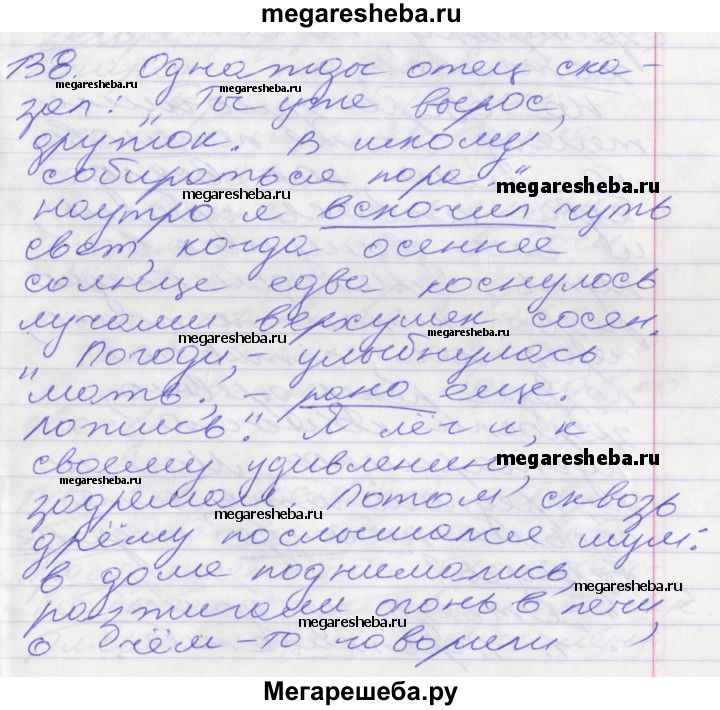 megaresheba.ru
В8. Однажды отец ска-
зал: „Ты уже вырос,
дружок. В школу
собираться пора"
megaresheba.ru
megaresheba.ru
наутро я вскочил чуть
свет, когда осеннее
megaresheba.ru
солнце едва коснулось
лучами верхушек сосен.
megaresheba.ru
megaresheba.ru
„Погоди, – улыбнулась
мать, – рано еще.
megaresheba.ru
Ложись". Я лёг и, к
своему удивлению,
megaresheba.ru
megaresheba.ru
задремал. Потом сквозь
megaresheba.ru
дрёму послышался шум:
в доме поднимались,
megaresheba.ru
разжигали огонь в печи,
megaresheba.ru
о чём-то говорили
Мегарешеба.ру